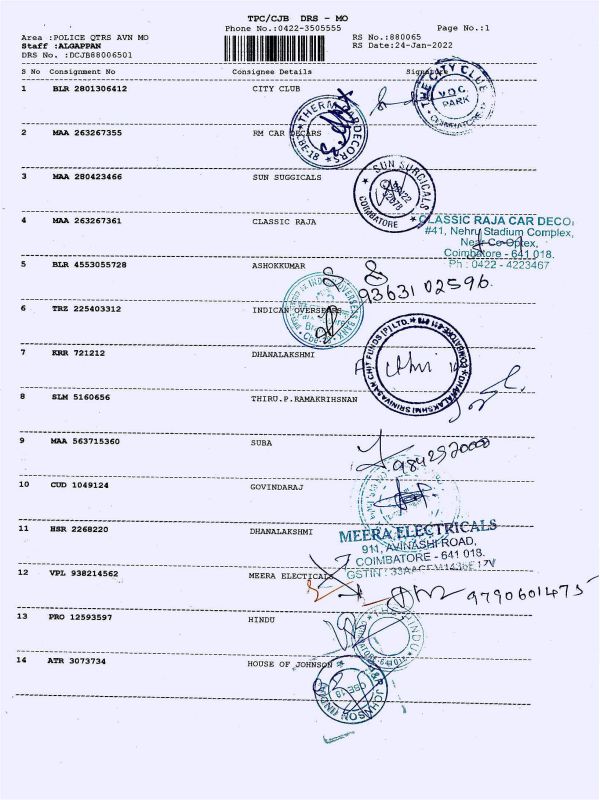 TPC/CJB DRS - MO
Phone No.:0422-3505555 Page No.:1
Area :POLICE QTRS AVN MO RS No.:880065
Staff :ALGAPPAN RS Date:24-Jan-2022
DRS No. :DCJB88006501
S No Consignment No Consignee Details Signature
1 BLR 2801306412 CITY CLUB
THE CITY CLUB
V.O.C.
PARK
COIMBATORE
2 MAA 263267355 RM CAR DECARS
CBE-18
3 MAA 280423466 SUN SUGGICALS
SUN SURGICALS
COIMBATORE
4 MAA 263267361 CLASSIC RAJA
CLASSIC RAJA CAR DECO
#41, Nehru Stadium Complex,
Near Co-Optex,
Coimbatore - 641 018.
Ph : 0422 - 4223467
5 BLR 4553055728 ASHOKKUMAR
93631 02596.
6 TRZ 225403312 INDICAN OVERSEAS
7 KRR 721212 DHANALAKSHMI
DHANALAKSHMI SRINIVASAN CHIT FUNDS (P) LTD.
8 SLM 5160656 THIRU.P.RAMAKRIHSNAN
9 MAA 563715360 SUBA
10 CUD 1049124 GOVINDARAJ
11 HSR 2268220 DHANALAKSHMI
MEERA ELECTRICALS
911, AVINASHI ROAD,
COIMBATORE - 641 018.
12 VPL 938214562 MEERA ELECTICALS
9790601475
13 PRO 12593597 HINDU
THE HINDU
14 ATR 3073734 HOUSE OF JOHNSON